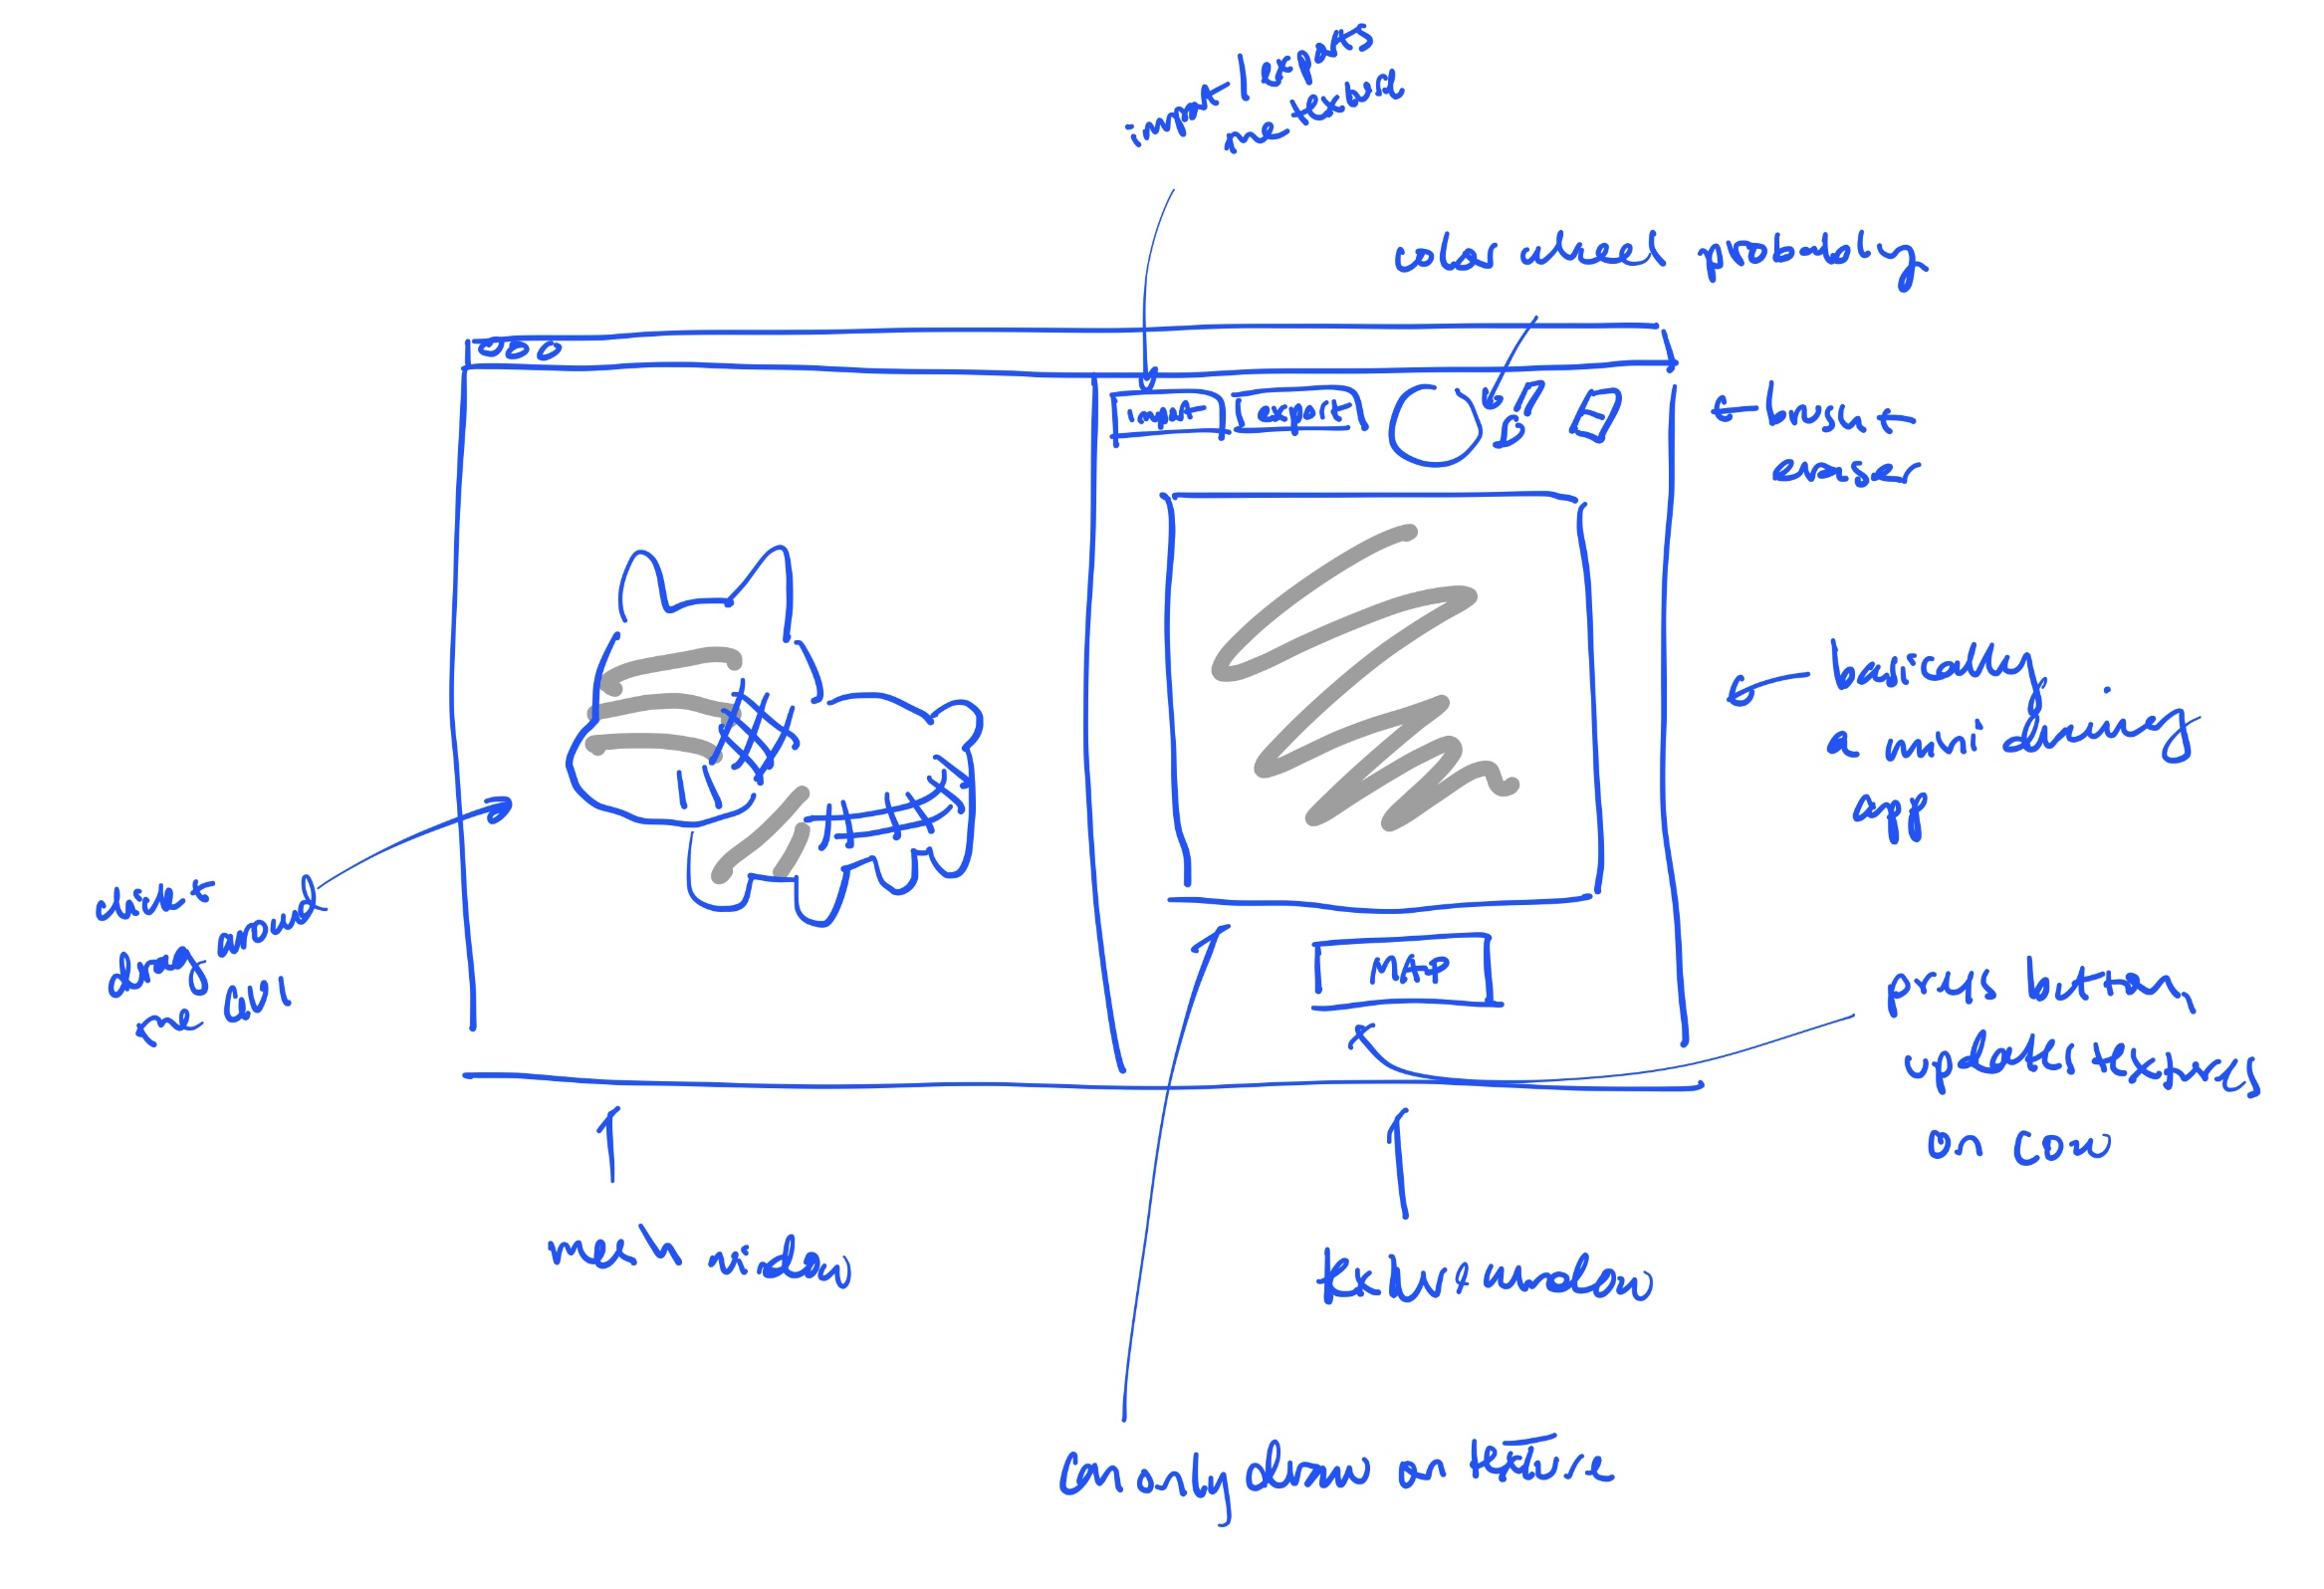 import / exports
me texture
color wheel probably
import export
brush +
eraser
basically
a mini drawing
app
can
drag around
me
MAP
press button,
update textures
on cow
mesh window
texture window
can only draw on texture